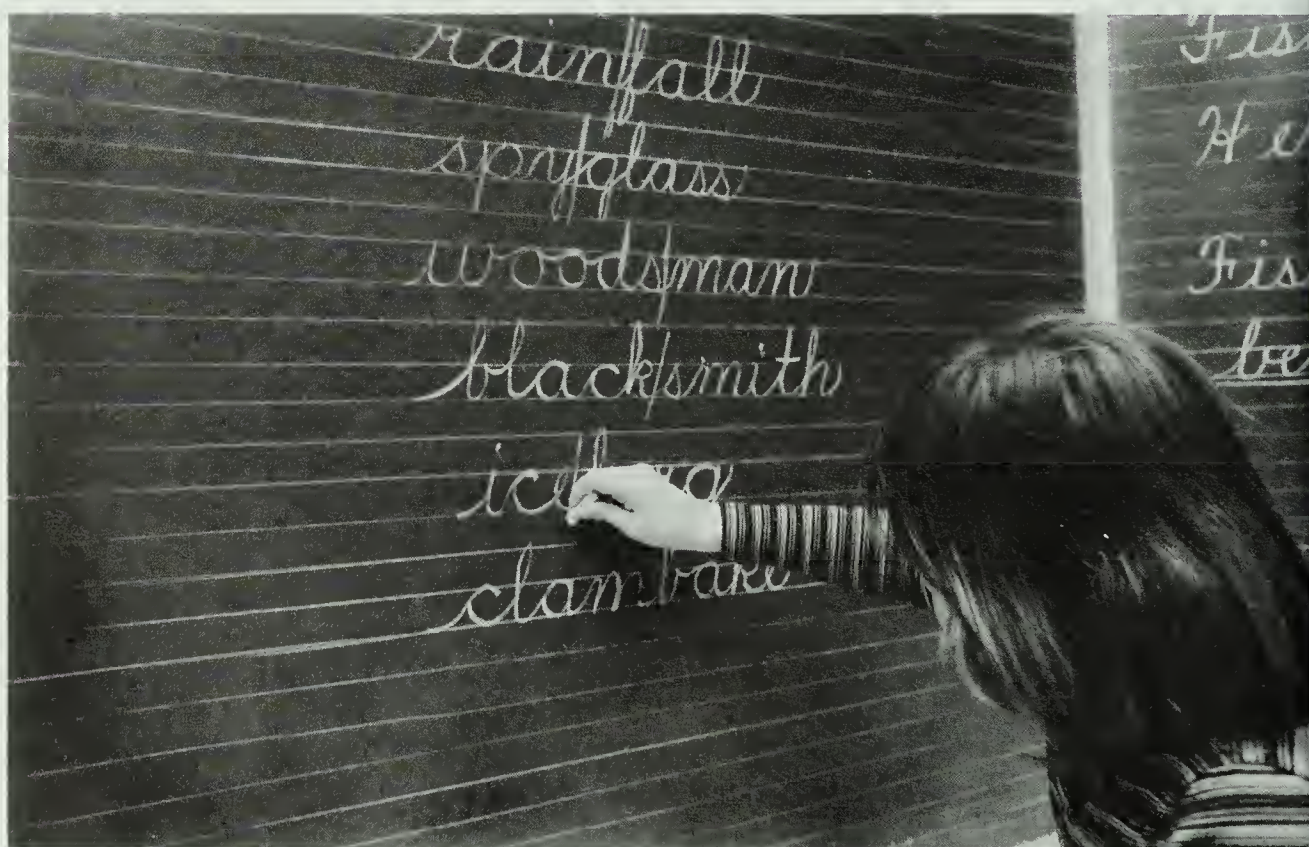 rain/fall
spy/glass
woods/man
black/smith
clam/bake
Fis
He
Fis
be